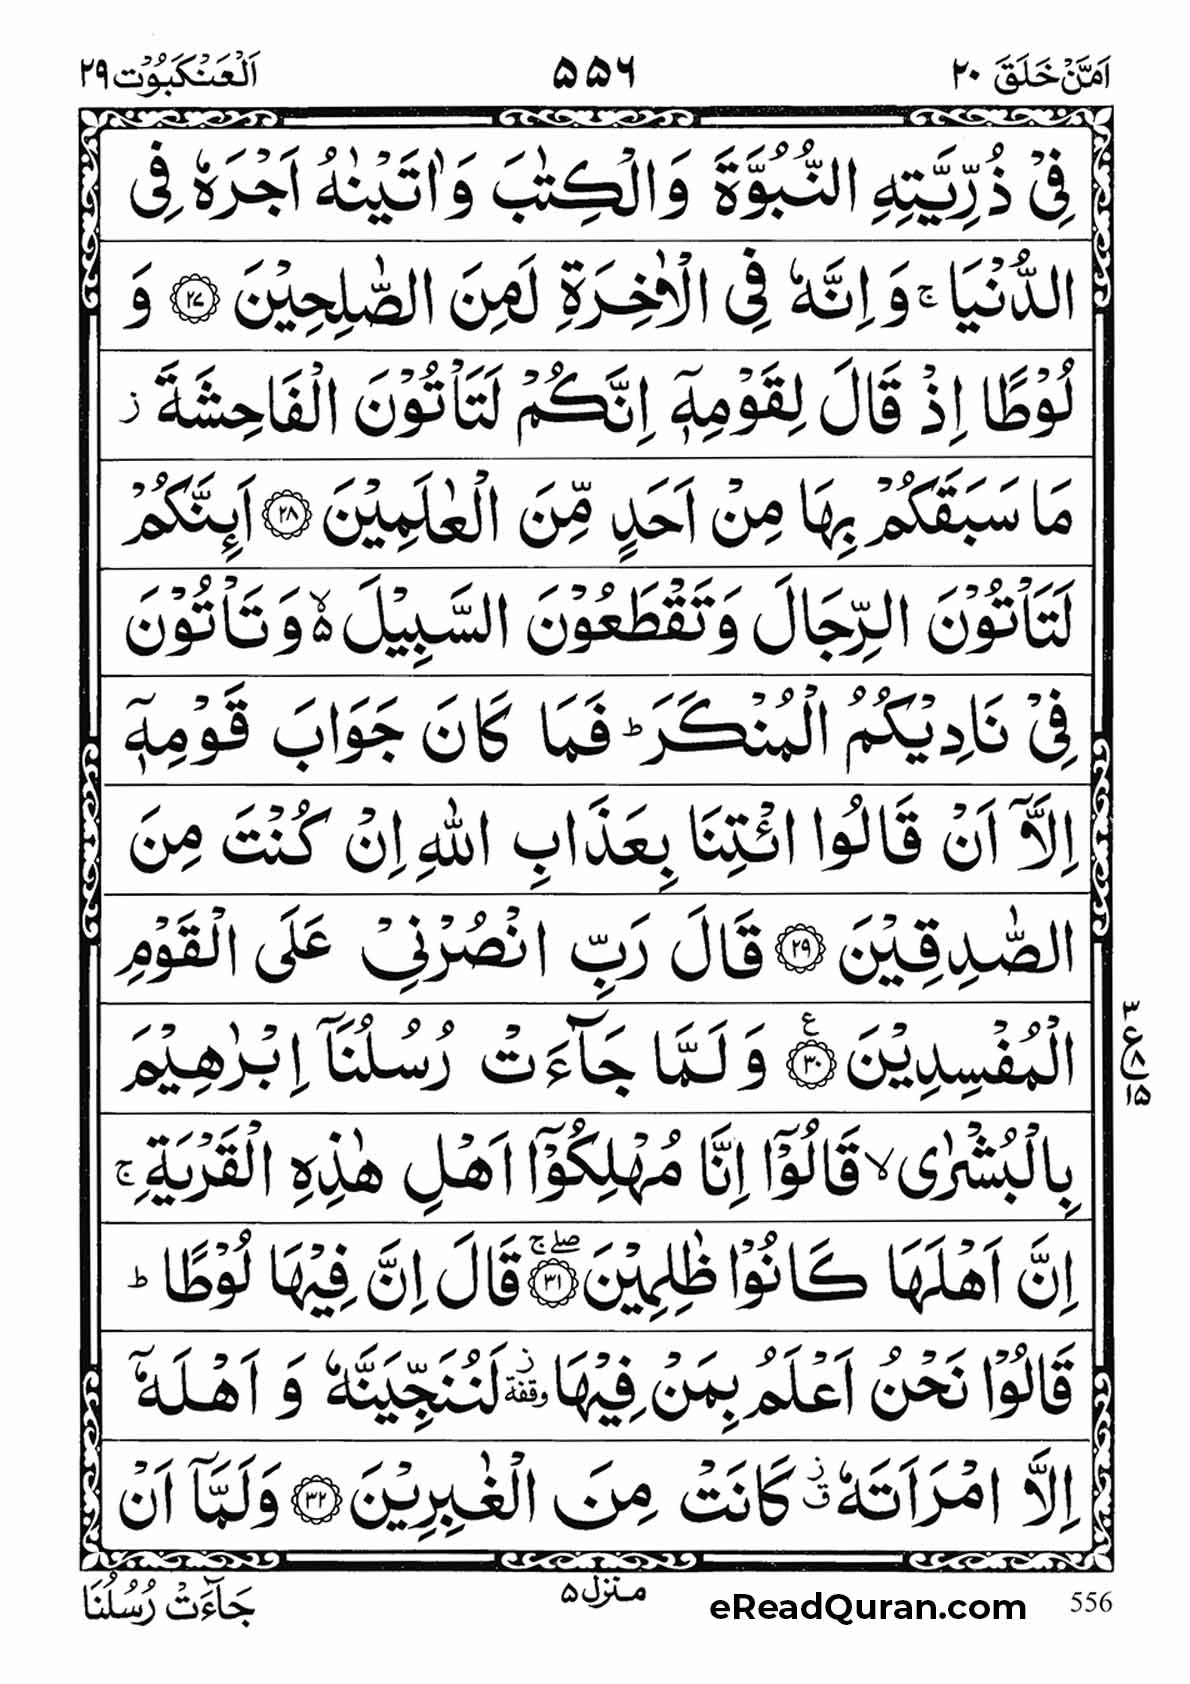 اَمَّنْ خَلَقَ ٢٠ ۵۵۶ اَلْعَنْكَبُوْت ٢٩
فِيْ ذُرِّيَّتِهِ النُّبُوَّةَ وَالْكِتٰبَ وَاٰتَيْنٰهُ اَجْرَهٗ فِي
الدُّنْيَا ۚ وَاِنَّهٗ فِي الْاٰخِرَةِ لَمِنَ الصّٰلِحِيْنَ ﴿٢٧﴾ وَ
لُوْطًا اِذْ قَالَ لِقَوْمِهٖۤ اِنَّكُمْ لَتَاْتُوْنَ الْفَاحِشَةَ ز
مَا سَبَقَكُمْ بِهَا مِنْ اَحَدٍ مِّنَ الْعٰلَمِيْنَ ﴿٢٨﴾ اَىِٕنَّكُمْ
لَتَاْتُوْنَ الرِّجَالَ وَتَقْطَعُوْنَ السَّبِيْلَ ۙ۵ وَتَاْتُوْنَ
فِيْ نَادِيْكُمُ الْمُنْكَرَ ؕ فَمَا كَانَ جَوَابَ قَوْمِهٖۤ
اِلَّاۤ اَنْ قَالُوا ائْتِنَا بِعَذَابِ اللّٰهِ اِنْ كُنْتَ مِنَ
الصّٰدِقِيْنَ ﴿٢٩﴾ قَالَ رَبِّ انْصُرْنِيْ عَلَى الْقَوْمِ
الْمُفْسِدِيْنَ ﴿٣٠﴾ ع وَلَمَّا جَآءَتْ رُسُلُنَاۤ اِبْرٰهِيْمَ
٣ ع ٨ ١۵
بِالْبُشْرٰى ۙ قَالُوْۤا اِنَّا مُهْلِكُوْۤا اَهْلِ هٰذِهِ الْقَرْيَةِ ۚ
اِنَّ اَهْلَهَا كَانُوْا ظٰلِمِيْنَ ﴿٣١﴾ صلے ج قَالَ اِنَّ فِيْهَا لُوْطًا ؕ
قَالُوْا نَحْنُ اَعْلَمُ بِمَنْ فِيْهَا ز وقفة لَنُنَجِّيَنَّهٗ وَ اَهْلَهٗۤ
اِلَّا امْرَاَتَهٗ ز ق كَانَتْ مِنَ الْغٰبِرِيْنَ ﴿٣٢﴾ وَلَمَّاۤ اَنْ
جَآءَتْ رُسُلُنَا
منزل ۵
eReadQuran.com
556